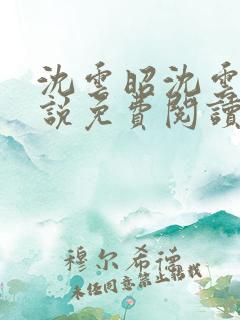 沈雲昭沈雲
說免費閱讀
穆尔希德
未经同意禁止转载